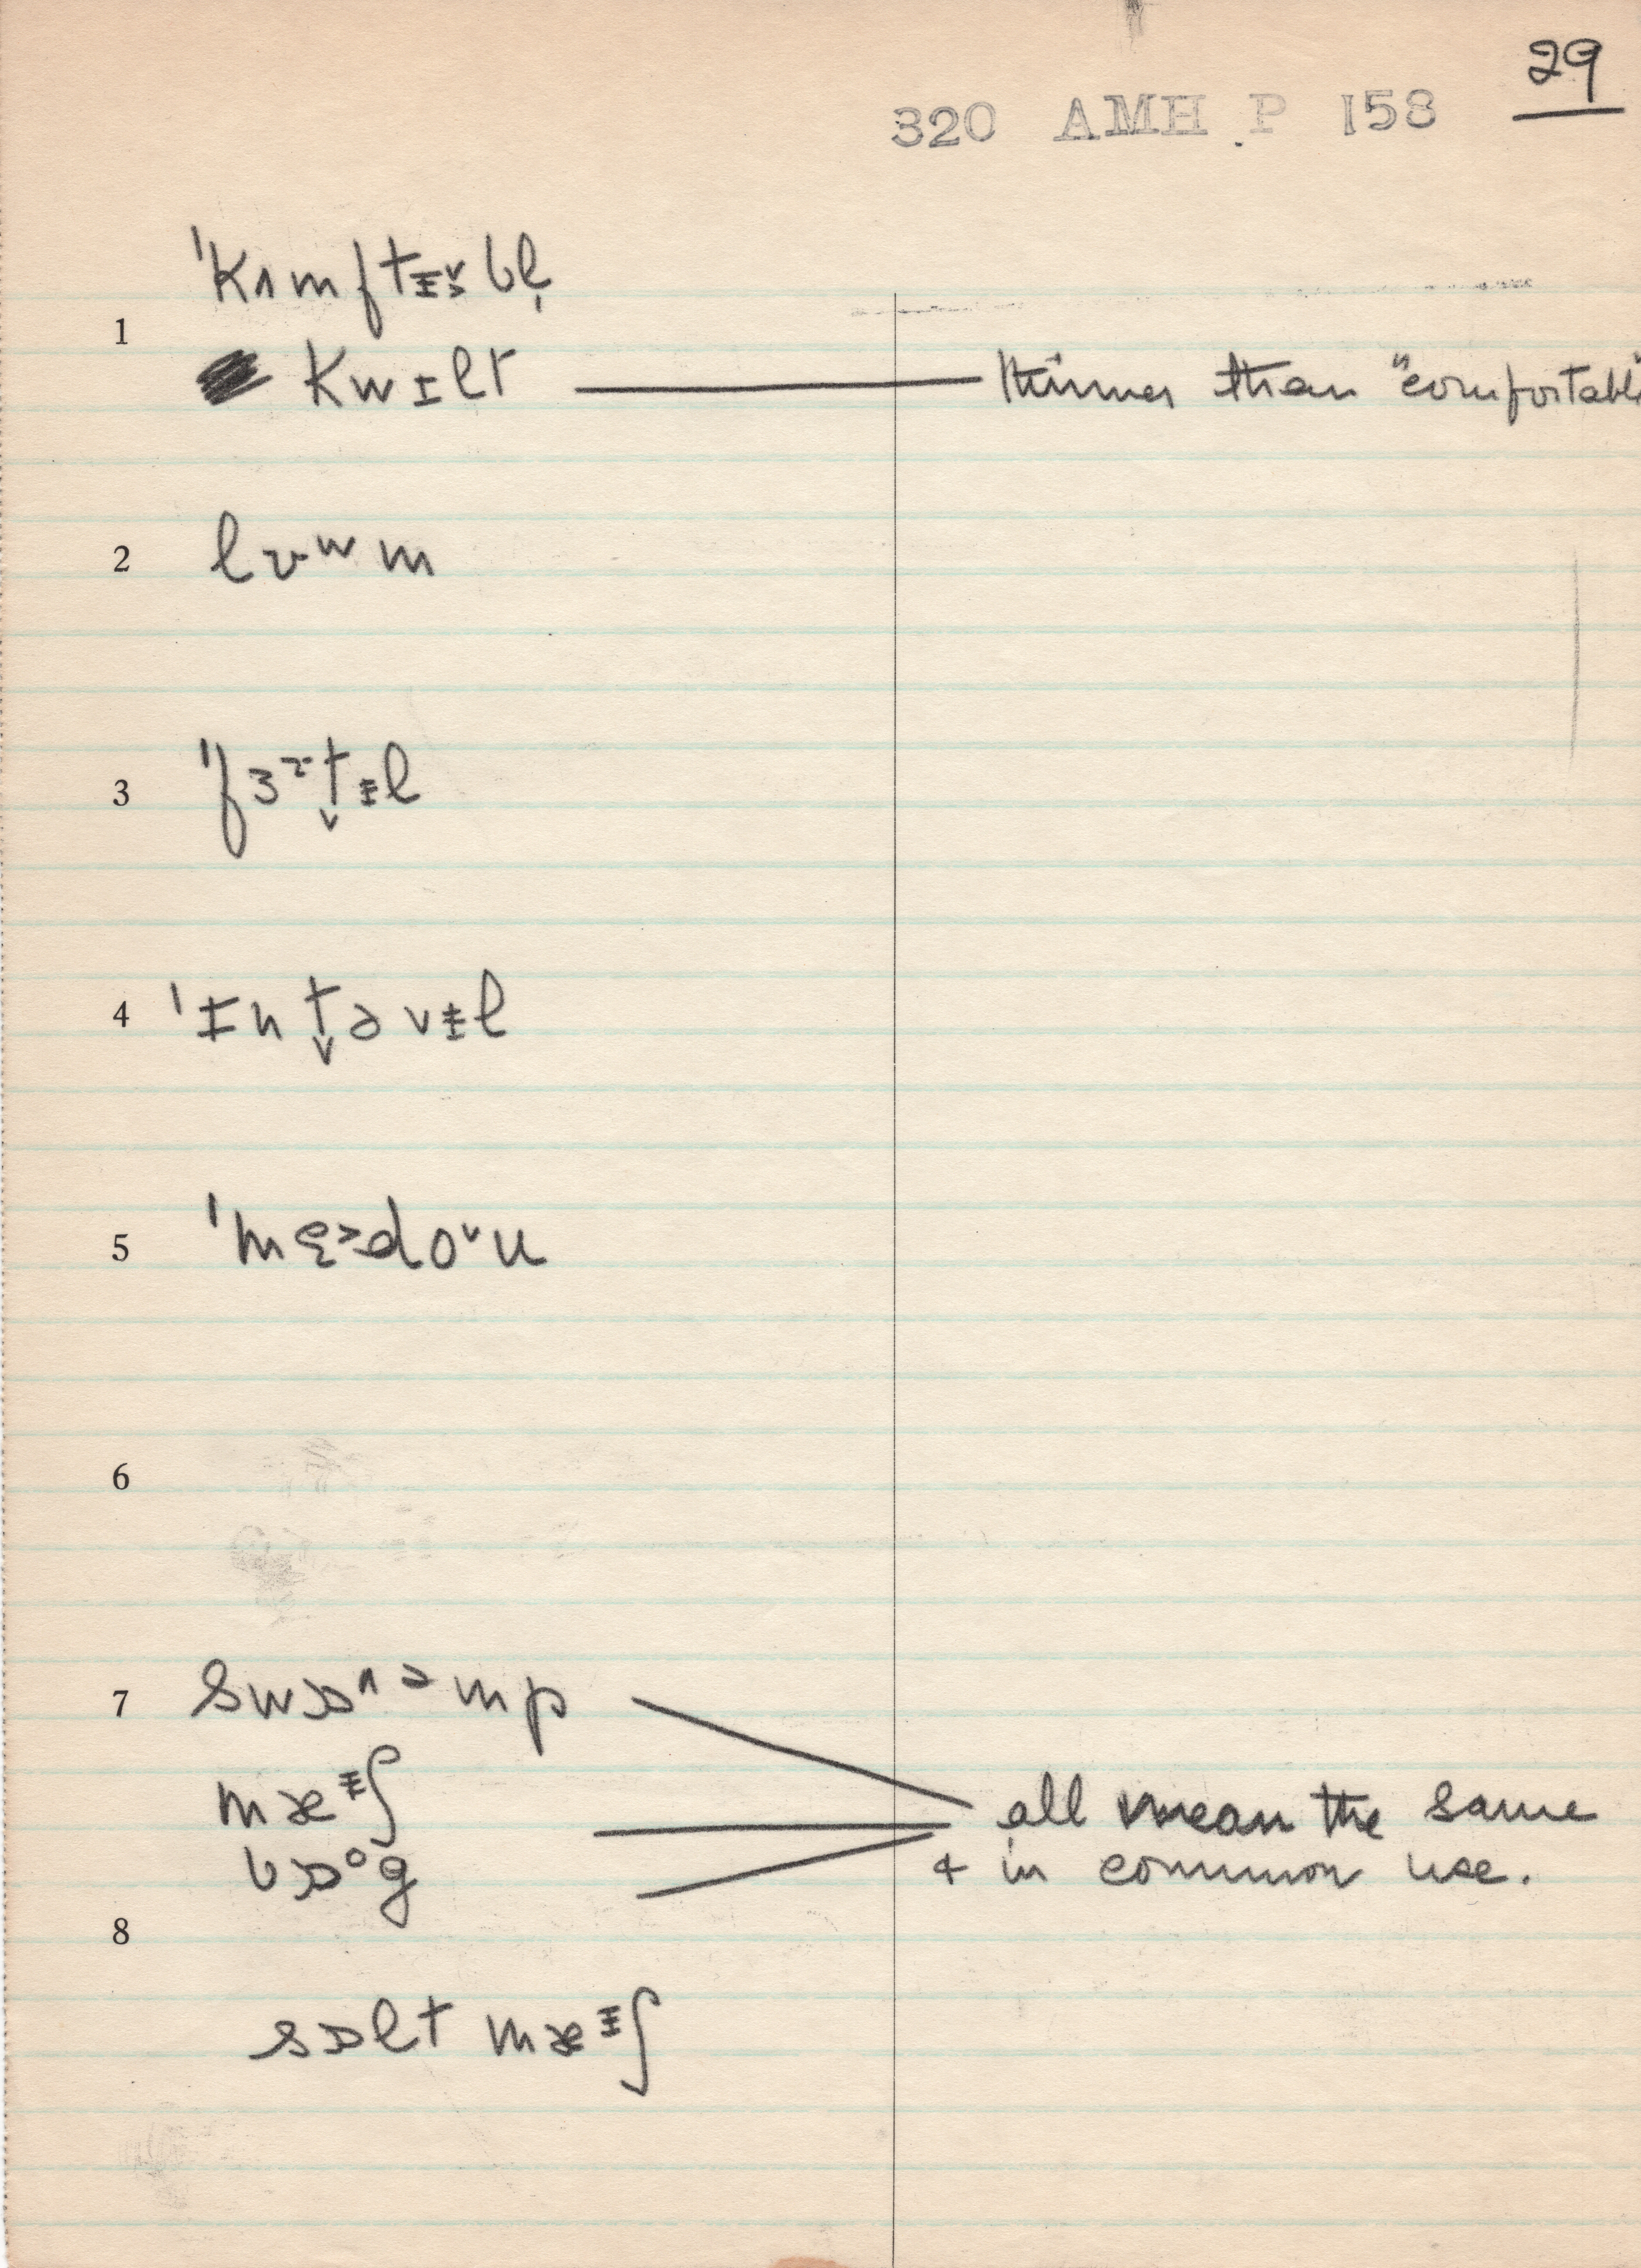 29
320 AMH P 158
1
ˈkʌmftɪ̵ə˅bl̩
kwɪlt thinner than "comfortabl
2 lʊʷm
3 ˈfɜɤt̬ɪ̵l
4 ˈɪnt̬əvɪ̵l
5 ˈmɛ˃do˅u
6
7 swɒ^əmp
mæᵻʃ all mean the same
bɒᵒg & in common use.
8
sɒlt mæᵻʃ